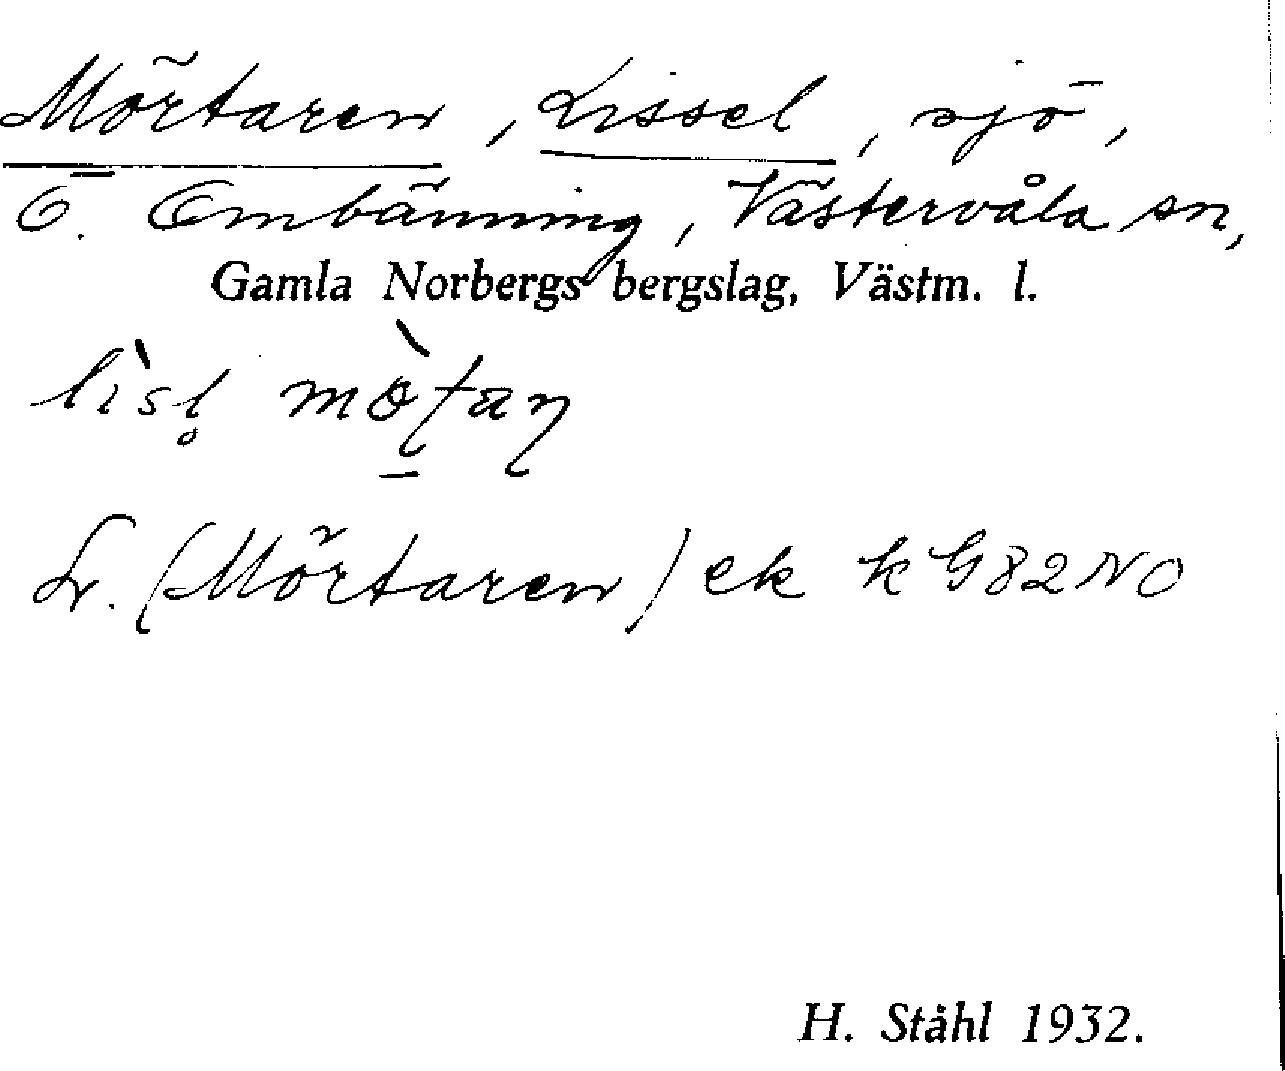 Mörtaren, Lissel, sjö,
Ö. Ombänning, Västervåla sn,
Gamla Norbergs bergslag, Västm. l.
lìsl̥ mò̱ʈaɳ
L. (Mörtaren) ek k G82NO
H. Ståhl 1932.